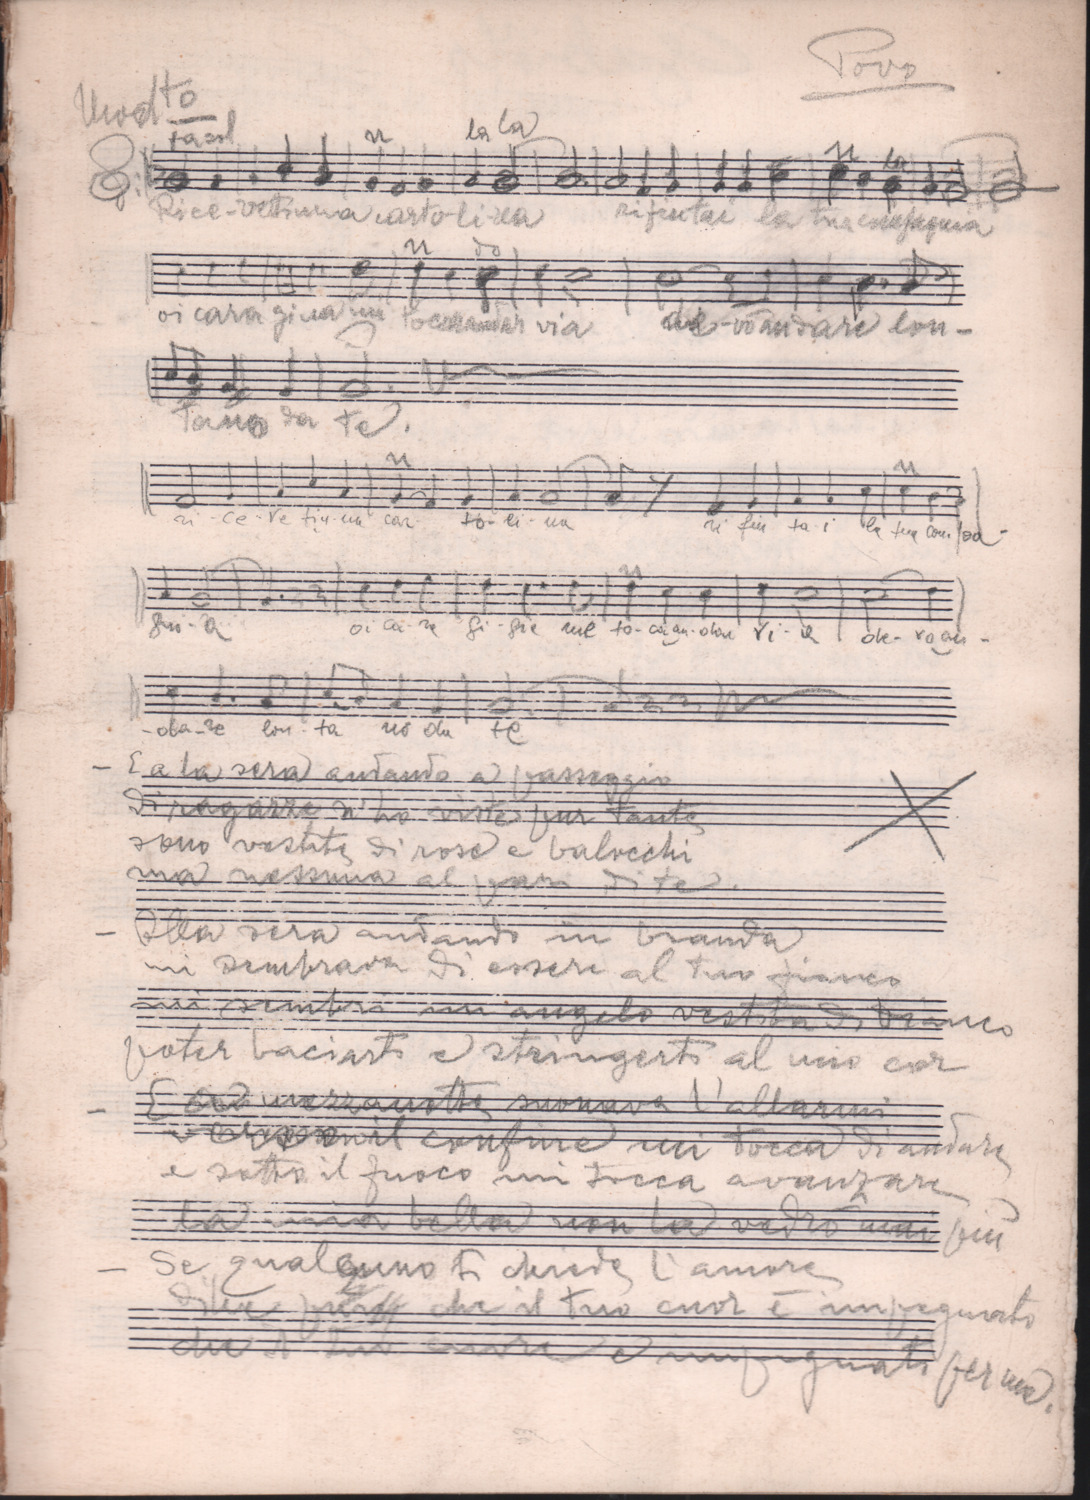 Povo
Modto
fa sol
la la
Rice-vetti una carto-lina rifiutai la tua compagnia
do
oi cara gina mi tocca andar via de-vo andare lon-
tano da te.
ri-ce-ve ti u-na car-to-li-na ri fiu ta-i la tua com pa-
gni-a oi ca-ra gi-gie me to-ca an-dar vi-a de-vo an-
-da-re lon-ta no da te
- E a la sera andando a passeggio
di ragazze n'ho viste pur tante
sono vestite di rose e balocchi
ma nessuna al pari di te.
- Alla sera andando in branda
mi sembrava di essere al tuo fianco
mi sembri un'angelo vestita di bianco
poter baciarti e stringerti al mio cor
- E a mezzanotte suonava l'allarmi
verso il confine mi tocca di andare
e sotto il fuoco mi tocca avanzare
la mia bella non la vedrò mai più
- Se qualcuno ti chiede l'amore
che il tuo cuor è impegnato
che il tuo cuore è impegnato per me.